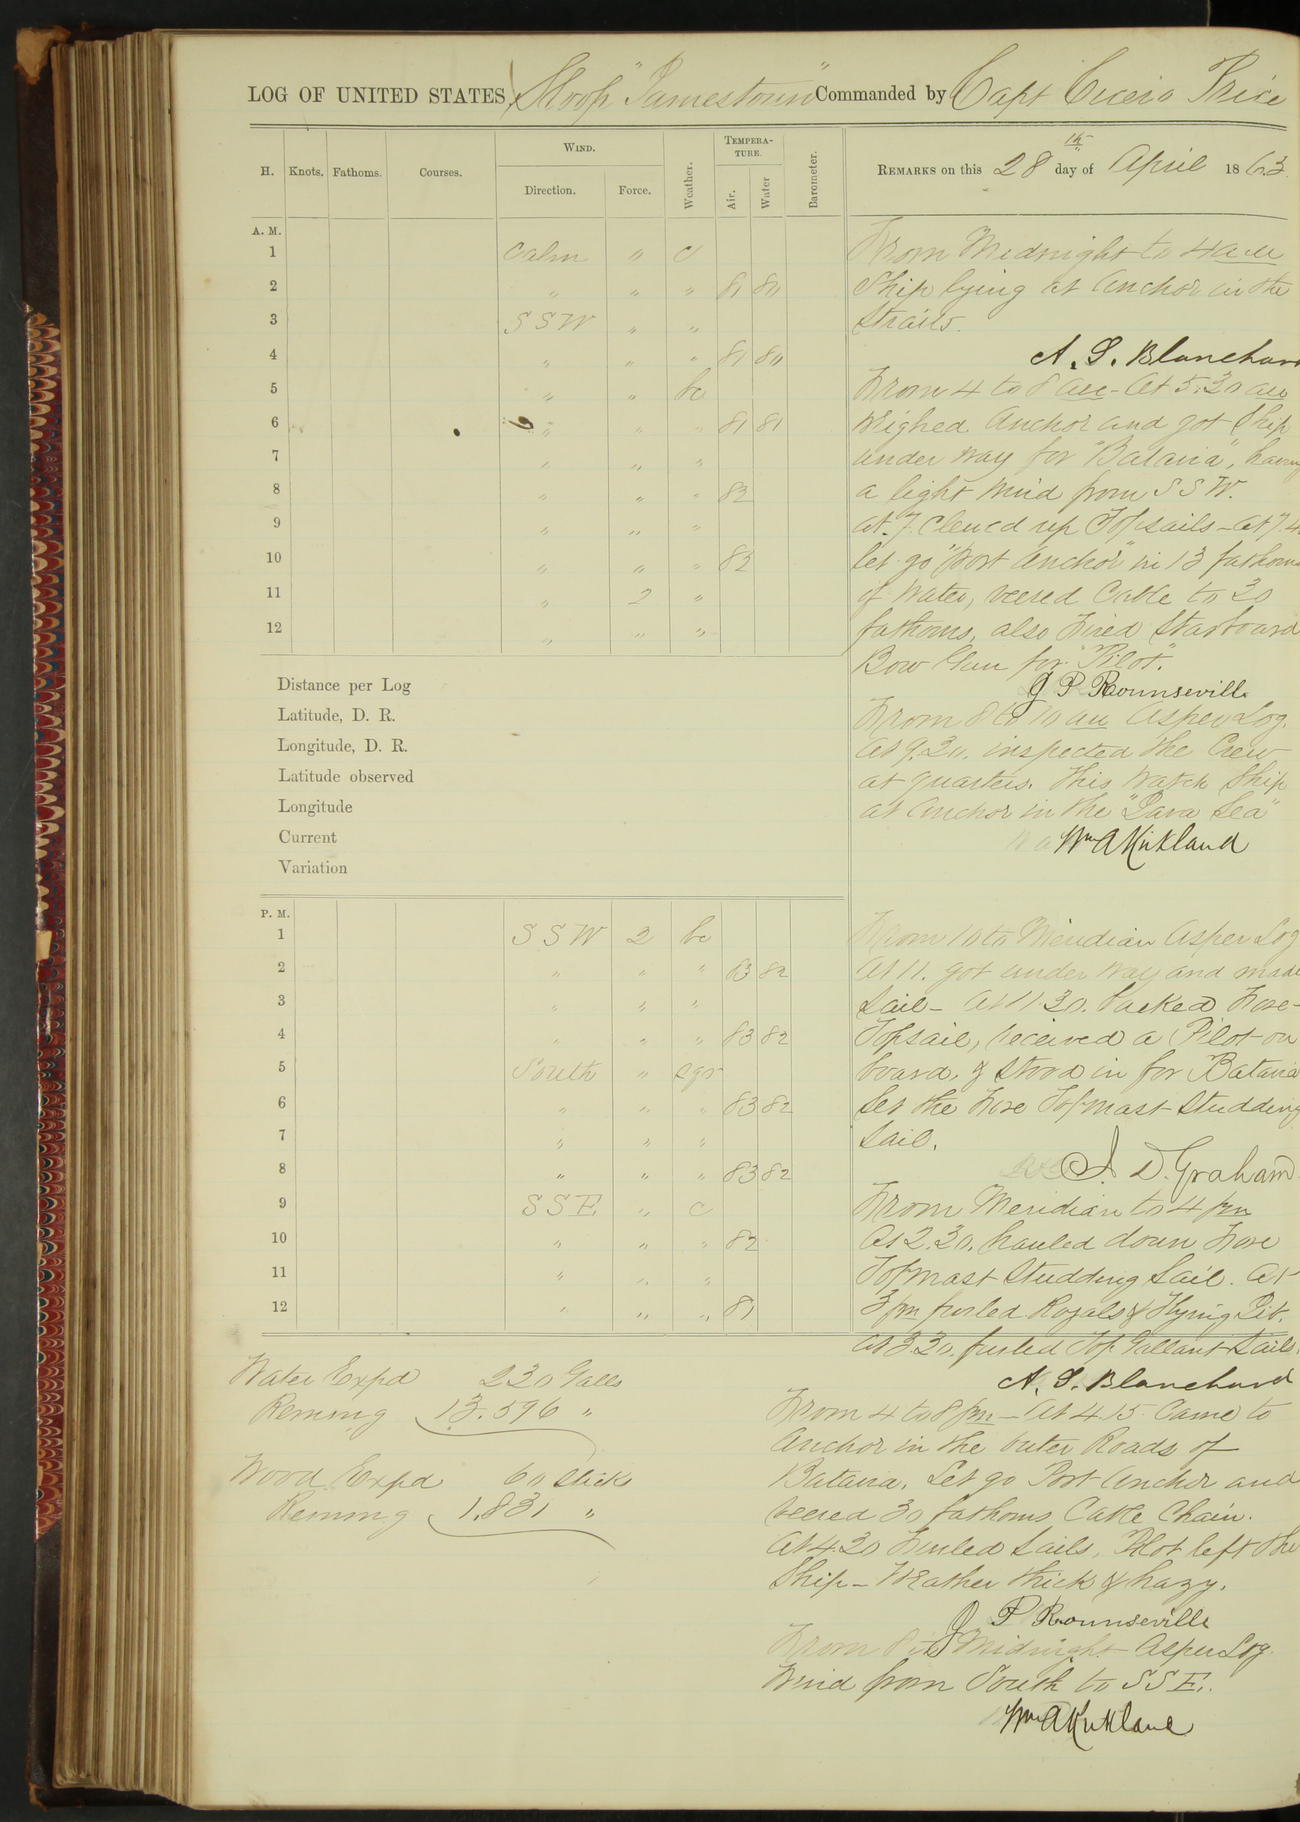 LOG OF UNITED STATES Sloop "Jamestown" Commanded by Capt Cicero Price
H. Knots. Fathoms. Courses. Wind. Direction. Force. Weather. Tempera-ture. Air. Water Barometer.
Remarks on this 28 th day of April 1863.
A. M.
1 Calm " c
2 " " " 81 81
3 SSW " "
4 " " " 81 80
5 " " bc
6 " " " 81 81
7 " " "
8 " " " 82
9 " " "
10 " " " 82
11 " 2 "
12 " " "
From Midnight to 4 am
Ship lying at Anchor in the
Straits.
A. S. Blanchard
From 4 to 8 am - At 5.30 am
Weighed Anchor and got Ship
under way for "Batavia", having
a light Wind from SSW.
at 7. Clewed up Topsails - At 7.4
let go "Port Anchor" in 13 fathoms
of Water, veered Cable to 30
fathoms, also Fired Starboard
Bow Gun for "Pilot".
J P Rounseville
From 8 to 10 am As per Log.
At 9.30. inspected the Crew
at quarters. This Watch Ship
at Anchor in the "Java Sea"
Wm A Kirkland
Distance per Log
Latitude, D. R.
Longitude, D. R.
Latitude observed
Longitude
Current
Variation
P. M.
1 SSW 2 bc
2 " " " 83 82
3 " " "
4 " " " 83 82
5 South " sqr
6 " " " 83 82
7 " " "
8 " " " 83 82
9 SSE " c
10 " " " 82
11 " " "
12 " " " 81
From 10 to Meridian As per Log
At 11. got under Way and made
Sail - At 11 30. backed Fore-
Topsail, received a Pilot on
board, & stood in for Batavia
Set the Fore Topmast Studding
Sail.
J. D. Graham
From Meridian to 4 pm
At 2.30. hauled down Fore
Topmast Studding Sail. At
3 pm furled Royals & Flying Jib.
at 3.30. furled Top Gallant Sails.
A. S. Blanchard
From 4 to 8 pm - At 4.15 Came to
Anchor in the Outer Roads of
Batavia. Let go Port Anchor and
veered 30 fathoms Cable Chain.
At 4.30 Furled Sails, Pilot left the
Ship - Weather thick & hazy.
J P Rounseville
From 8 to Midnight As per Log.
Wind from South to SSE.
Wm A Kirkland
Water Expd 230 Galls
Remng 13.596 "
Wood Expd 60 Sticks
Remng 1.831 "